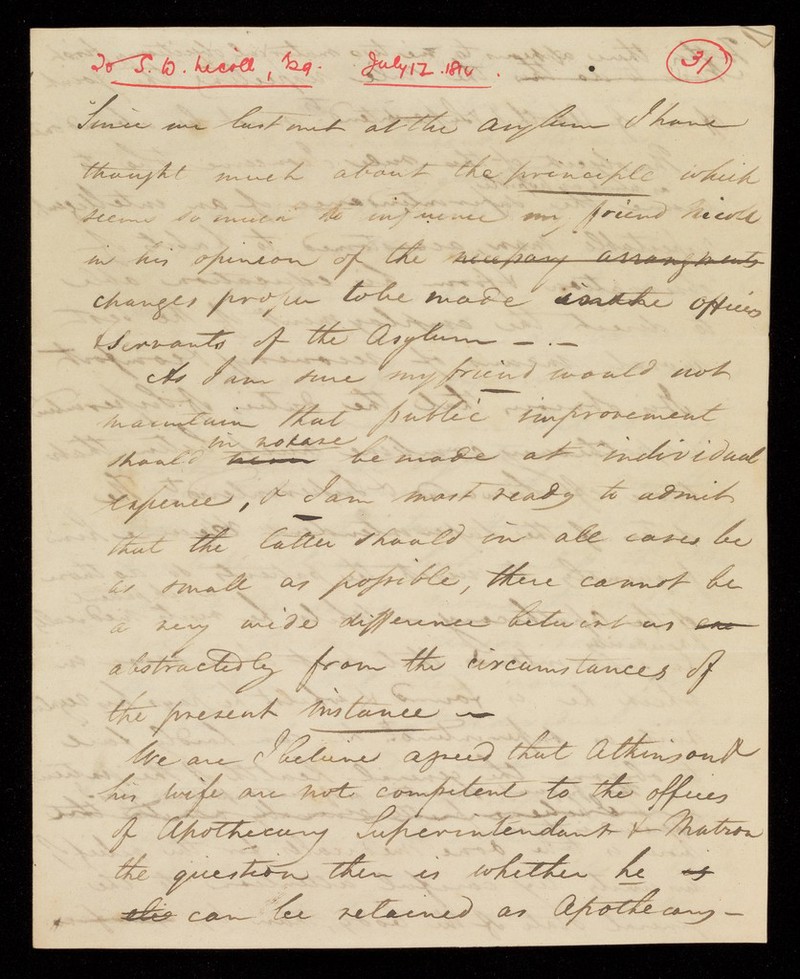 To S. W. Nicoll, Esq. July 12. 181
31
Since we last met at the Asylum I have
thought much about the principle which
seems so much to influence my friend Nicoll
in his opinion of the necessary arrangements
changes proper to be made in the offices
& Servants of the Asylum - . -
As I am sure my friend would not
maintain that public improvement
should in no case be made at individual
expence, & I am most ready to admit
that the latter should in all cases be
as small as possible, there cannot be
a very wide difference betwixt us
abstractedly from the circumstances of
the present instance -
We are I believe agreed that Atkinson &
his wife are not competent to the offices
of Apothecary Superintendant & Matron
the question then is whether he is
can be retained as Apothecary -